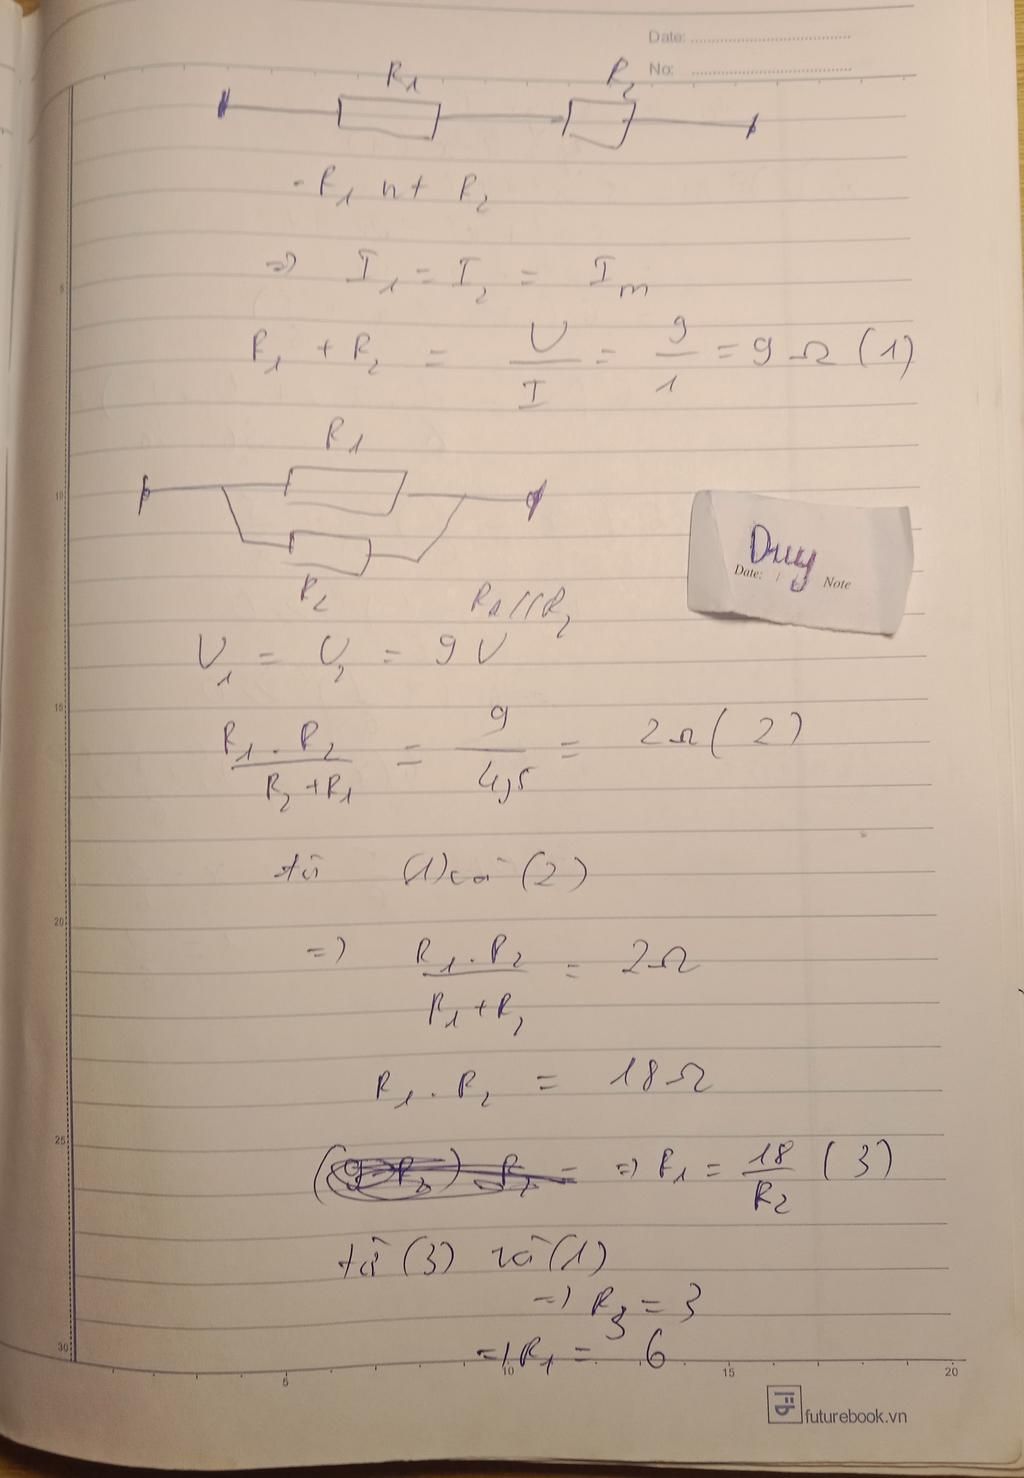 Date: ..........
No: ..........
R1 R2
- R1 nt R2
=> I1 = I2 = Im
R1 + R2 = U/I = 9/1 = 9 Ω (1)
R1
R2
Duy
Date: / Note
R1//R2
U1 = U2 = 9 V
R1 . R2 / R2 + R1 = 9/4,5 = 2Ω (2)
từ (1) và (2)
=> R1 . R2 / R1 + R2 = 2Ω
R1 . R2 = 18Ω
=> R1 = 18/R2 (3)
từ (3) và (1)
=> R2 = 3
=> R1 = 6
5
10
15
20
25
30
5 10 15 20
futurebook.vn